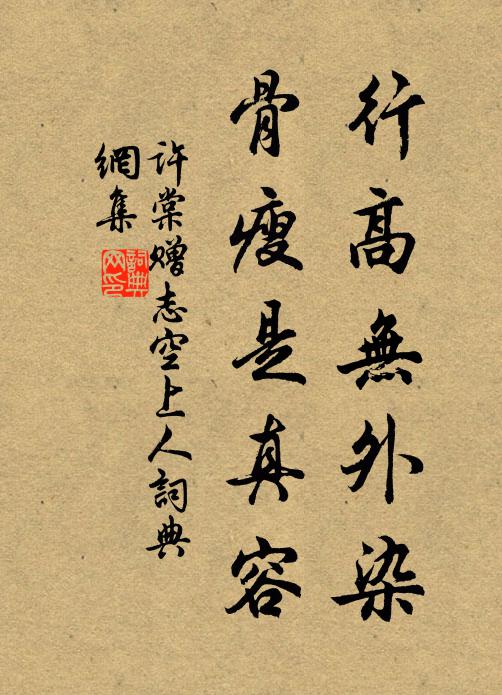 行高無外染
骨瘦是真容
許棠贈志空上人詞典
網集
詞典網印